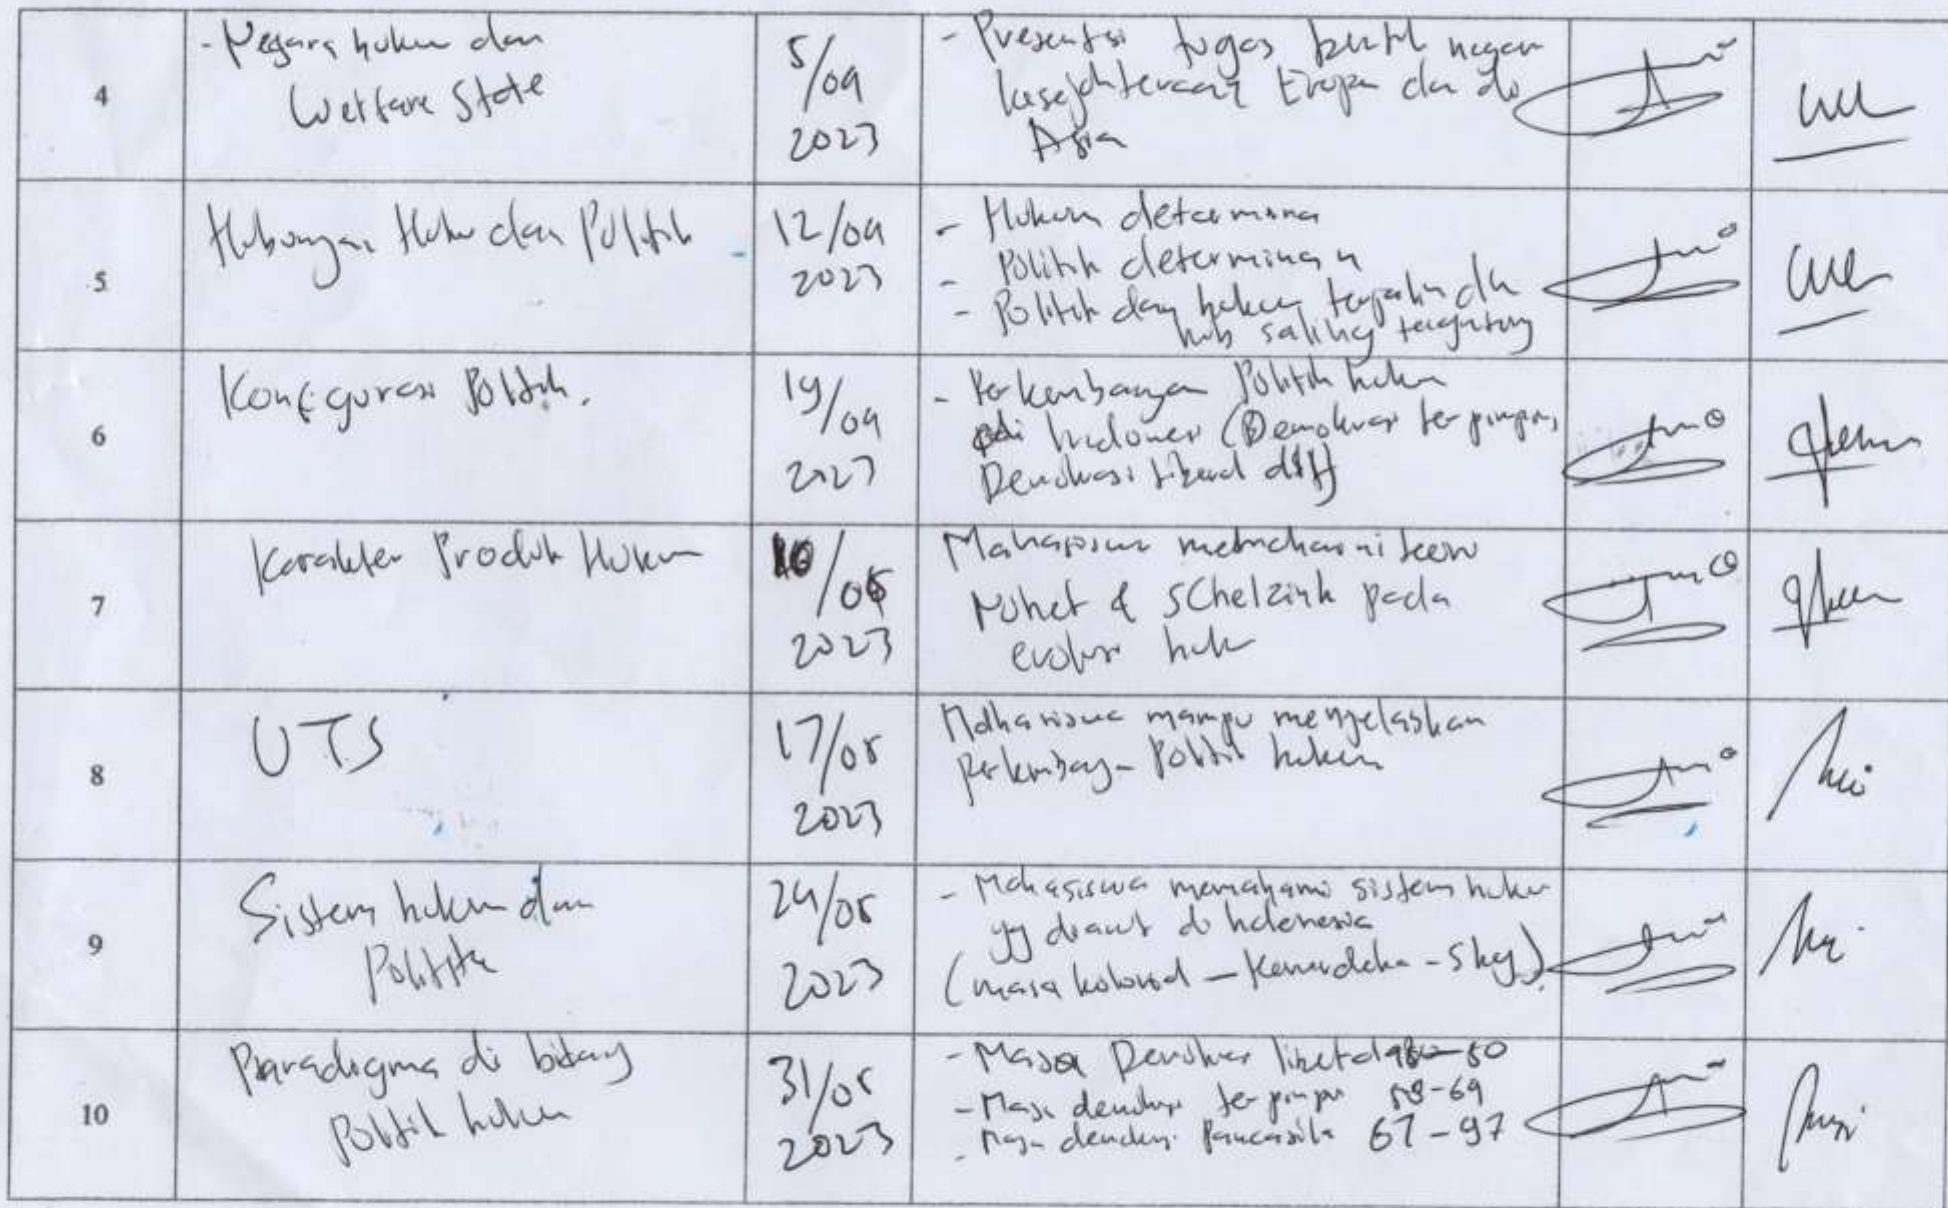 4
- Negara hukum dan
Welfare State
5/04
2023
- Presentasi tugas negara
kesejahteraan Eropa dan di
Asia
5
Hubungan Hukum dan Politik
12/04
2023
- Hukum determinan
- Politik determinan
- Politik dan hukum terjalin dlm
hub saling tergantung
6
Konfigurasi Politik.
19/04
2023
- Perkembangan Politik hukum
di Indonesia (Demokrasi terpimpin,
Demokrasi liberal dll)
7
Karakter Produk Hukum
10/05
2023
Mahasiswa memahami teori
Nonet & SChelzink pada
evolusi hukum
8
UTS
17/05
2023
Mahasiswa mampu menjelaskan
perkembangan Politik hukum
9
Sistem hukum dan
Politik
24/05
2023
- Mahasiswa memahami sistem hukum
yg dianut di Indonesia
(masa kolonial - Kemerdekaan - Skg)
10
Paradigma di bidang
Politik hukum
31/05
2023
- Masa Demokrasi liberal
- Masa demokrasi terpimpin 58-69
- Masa demokrasi Pancasila 67-97